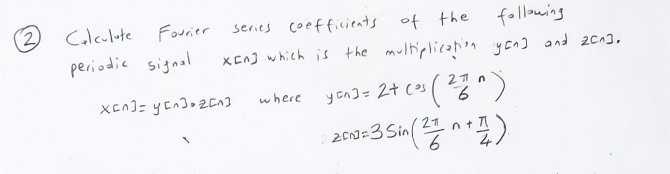 ② Calculate Fourier series coefficients of the following
periodic signal x[n] which is the multiplication y[n] and z[n].
x[n] = y[n] . z[n] where y[n] = 2 + cos(2π/6 n)
z[n] = 3 Sin(2π/6 n + π/4)